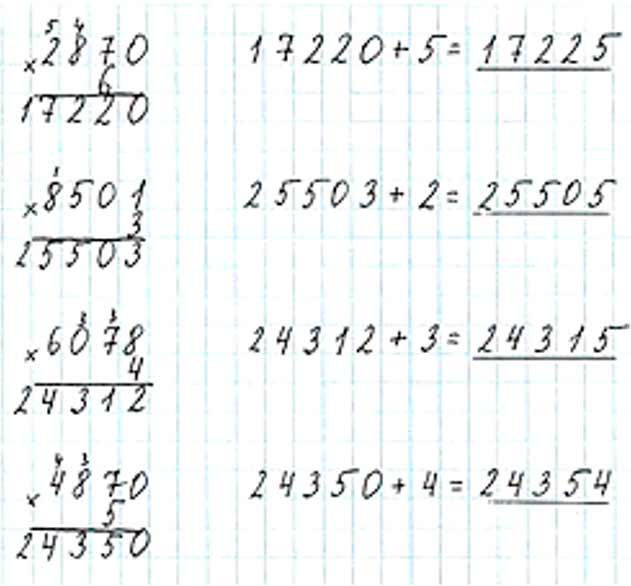 5 4
× 2870 17220 + 5 = 17225
6
17220
1
× 8501 25503 + 2 = 25505
3
25503
3 3
× 6078 24312 + 3 = 24315
4
24312
4 3
× 4870 24350 + 4 = 24354
5
24350